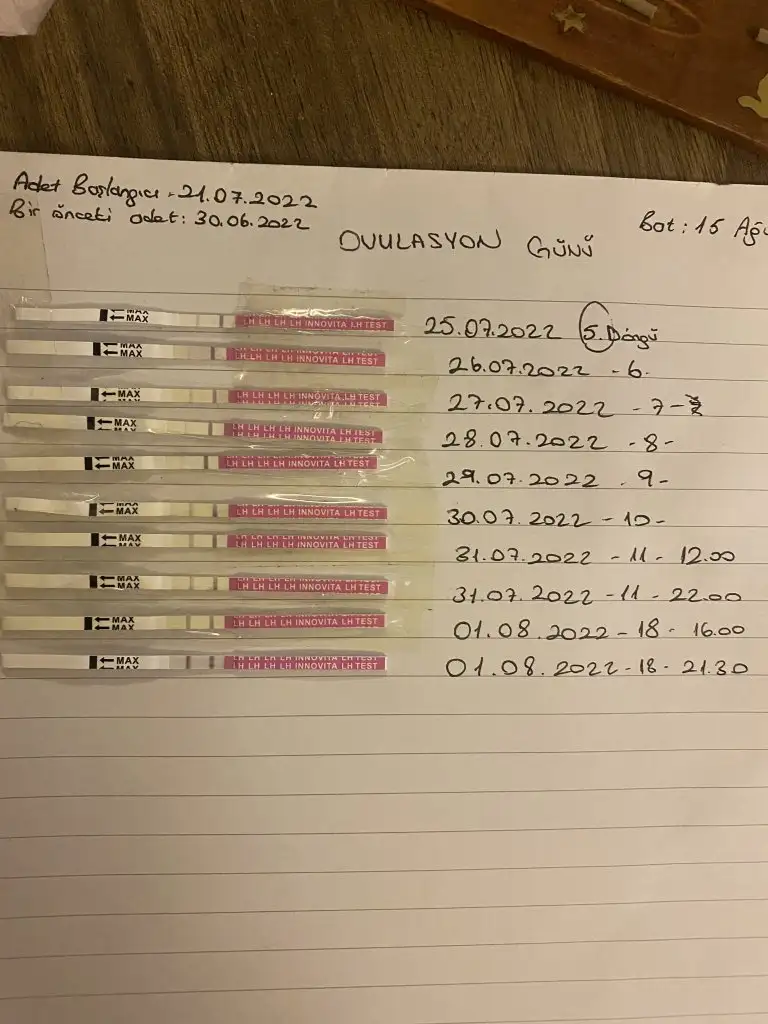 Adet Başlangıcı - 21.07.2022
Bir önceki adet: 30.06.2022
Bat: 15 Ağu
OVULASYON GÜNÜ
MAX
MAX
LH LH LH LH INNOVITA LH TEST
25.07.2022 5. Döngü
MAX
MAX
LH LH LH LH INNOVITA LH TEST
26.07.2022 - 6.
MAX
MAX
LH LH LH LH INNOVITA LH TEST
27.07.2022 - 7 -
MAX
LH LH LH LH INNOVITA LH TEST
28.07.2022 - 8 -
MAX
MAX
LH LH LH LH INNOVITA LH TEST
29.07.2022 . 9 -
MAX
MAX
LH LH LH LH INNOVITA LH TEST
30.07.2022 - 10 -
MAX
MAX
LH LH LH LH INNOVITA LH TEST
31.07.2022 - 11 - 12.00
MAX
MAX
LH LH LH LH INNOVITA LH TEST
31.07.2022 - 11 - 22.00
MAX
MAX
LH LH LH LH INNOVITA LH TEST
01.08.2022 - 18 - 16.00
MAX
MAX
LH LH LH LH INNOVITA LH TEST
01.08.2022 - 18 - 21.30